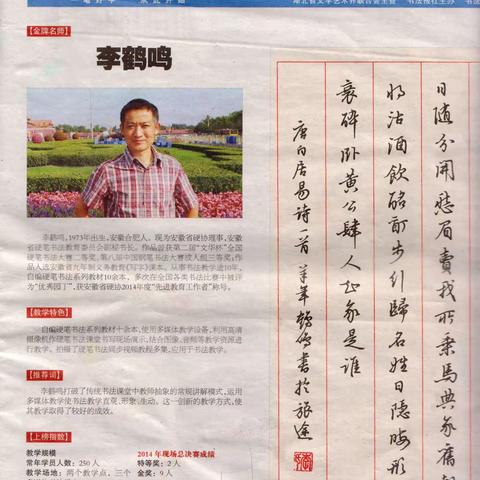 湖北省文学艺术界联合会主管 书法报社主办
【金牌名师】
李鹤鸣
李鹤鸣,1973年出生,安徽合肥人。现为安徽省硬协理事,安徽
省硬笔书法教育委员会副秘书长。作品曾获第二届“文华杯”全国
硬笔书法大赛二等奖,第八届中国钢笔书法大赛成人组三等奖;作
品入选安徽省九年制义务教育《写字》课本。从事书法教学逾10年,
自编硬笔书法系列教材10余本,多次在全国各类书法比赛中被评
为“优秀园丁”,获安徽省硬协2014年度“先进教育工作者”称号。
【教学特色】
自编硬笔书法系列教材十余本,使用多媒体教学设备,利用高清
摄像机作硬笔书法课堂书写现场演示,结合图像、音频等教学资源进
行教学。拍摄了硬笔书法同步视频教程多集,应用于书法教学。
【推荐词】
李鹤鸣打破了传统书法课堂中教师抽象的常规讲解模式,运用
多媒体教学使书法教学直观、形象、生动。这一创新的教学方式,使
其教学取得了较好的成效。
【上榜指数】
教学规模
常年学员人数:250人
教学场地:两个教学点,三个
2014年现场总决赛成绩
特等奖:2人
金奖:9人
日随分开愁眉卖我所乘马典
将沽酒饮酩酊步行归名姓日隐晦形
衰碎卧黄公肆人知我是谁
唐白居易诗一首 羊年 鹤鸣书于旅途